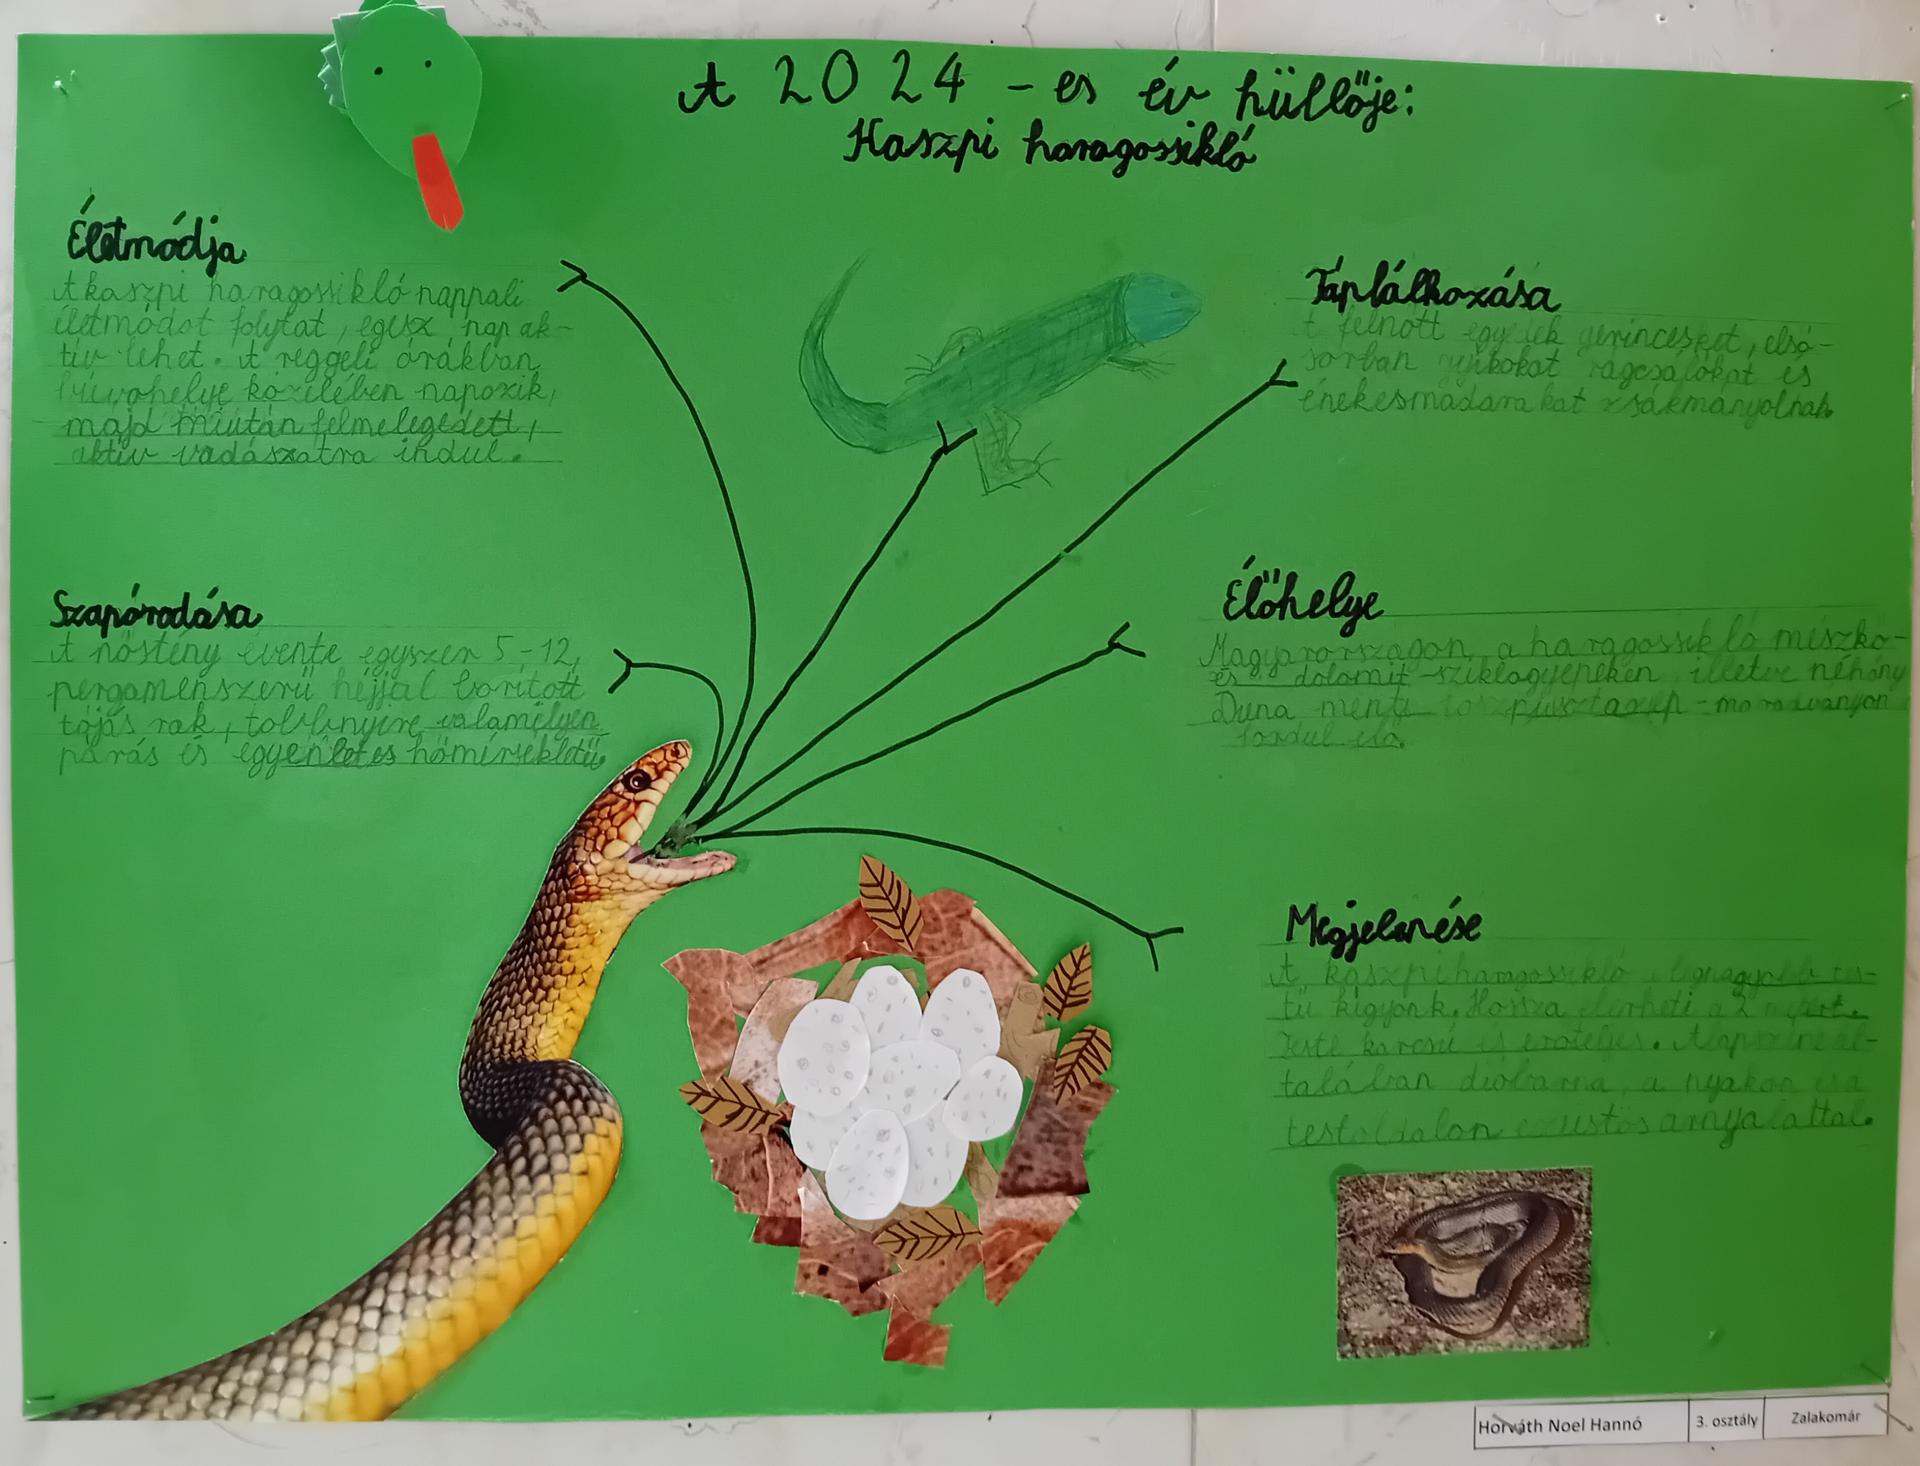 A 2024-es év hüllője:
Kaszpi haragossikló
Életmódja
A kaszpi haragossikló nappali
életmódot folytat, egész nap ak-
tív lehet. A reggeli órákban
búvóhelye közelében napozik,
majd miután felmelegedett,
aktív vadászatra indul.
Szapórodása
A nőstény évente egyszer 5-12,
pergamenszerű héjjal borított
tojás rak, többnyire valamélyen
párás és egyenletes hőmérsékletű
Táplálkozása
A felnőtt egyedek gerinceseket, első-
sorban gyíkokat rágcsálókat és
énekesmadarakat zsákmányolnak.
Élőhelye
Magyarországon a haragossikló mészkő-
és dolomit-sziklagyepeken, illetve néhány
Duna menti löszpusztagyep-maradványon
fordul elő.
Megjelenése
A kaszpi haragossikló legnagyobb tes-
tű kígyónk. Hossza elérheti a 2 métert.
Teste karcsú és erőteljes. Alapszíne ál-
talában dióbarna, a nyakon és a
testoldalon ezüstös árnyalattal.
Horváth Noel Hannó
3. osztály
Zalakomár